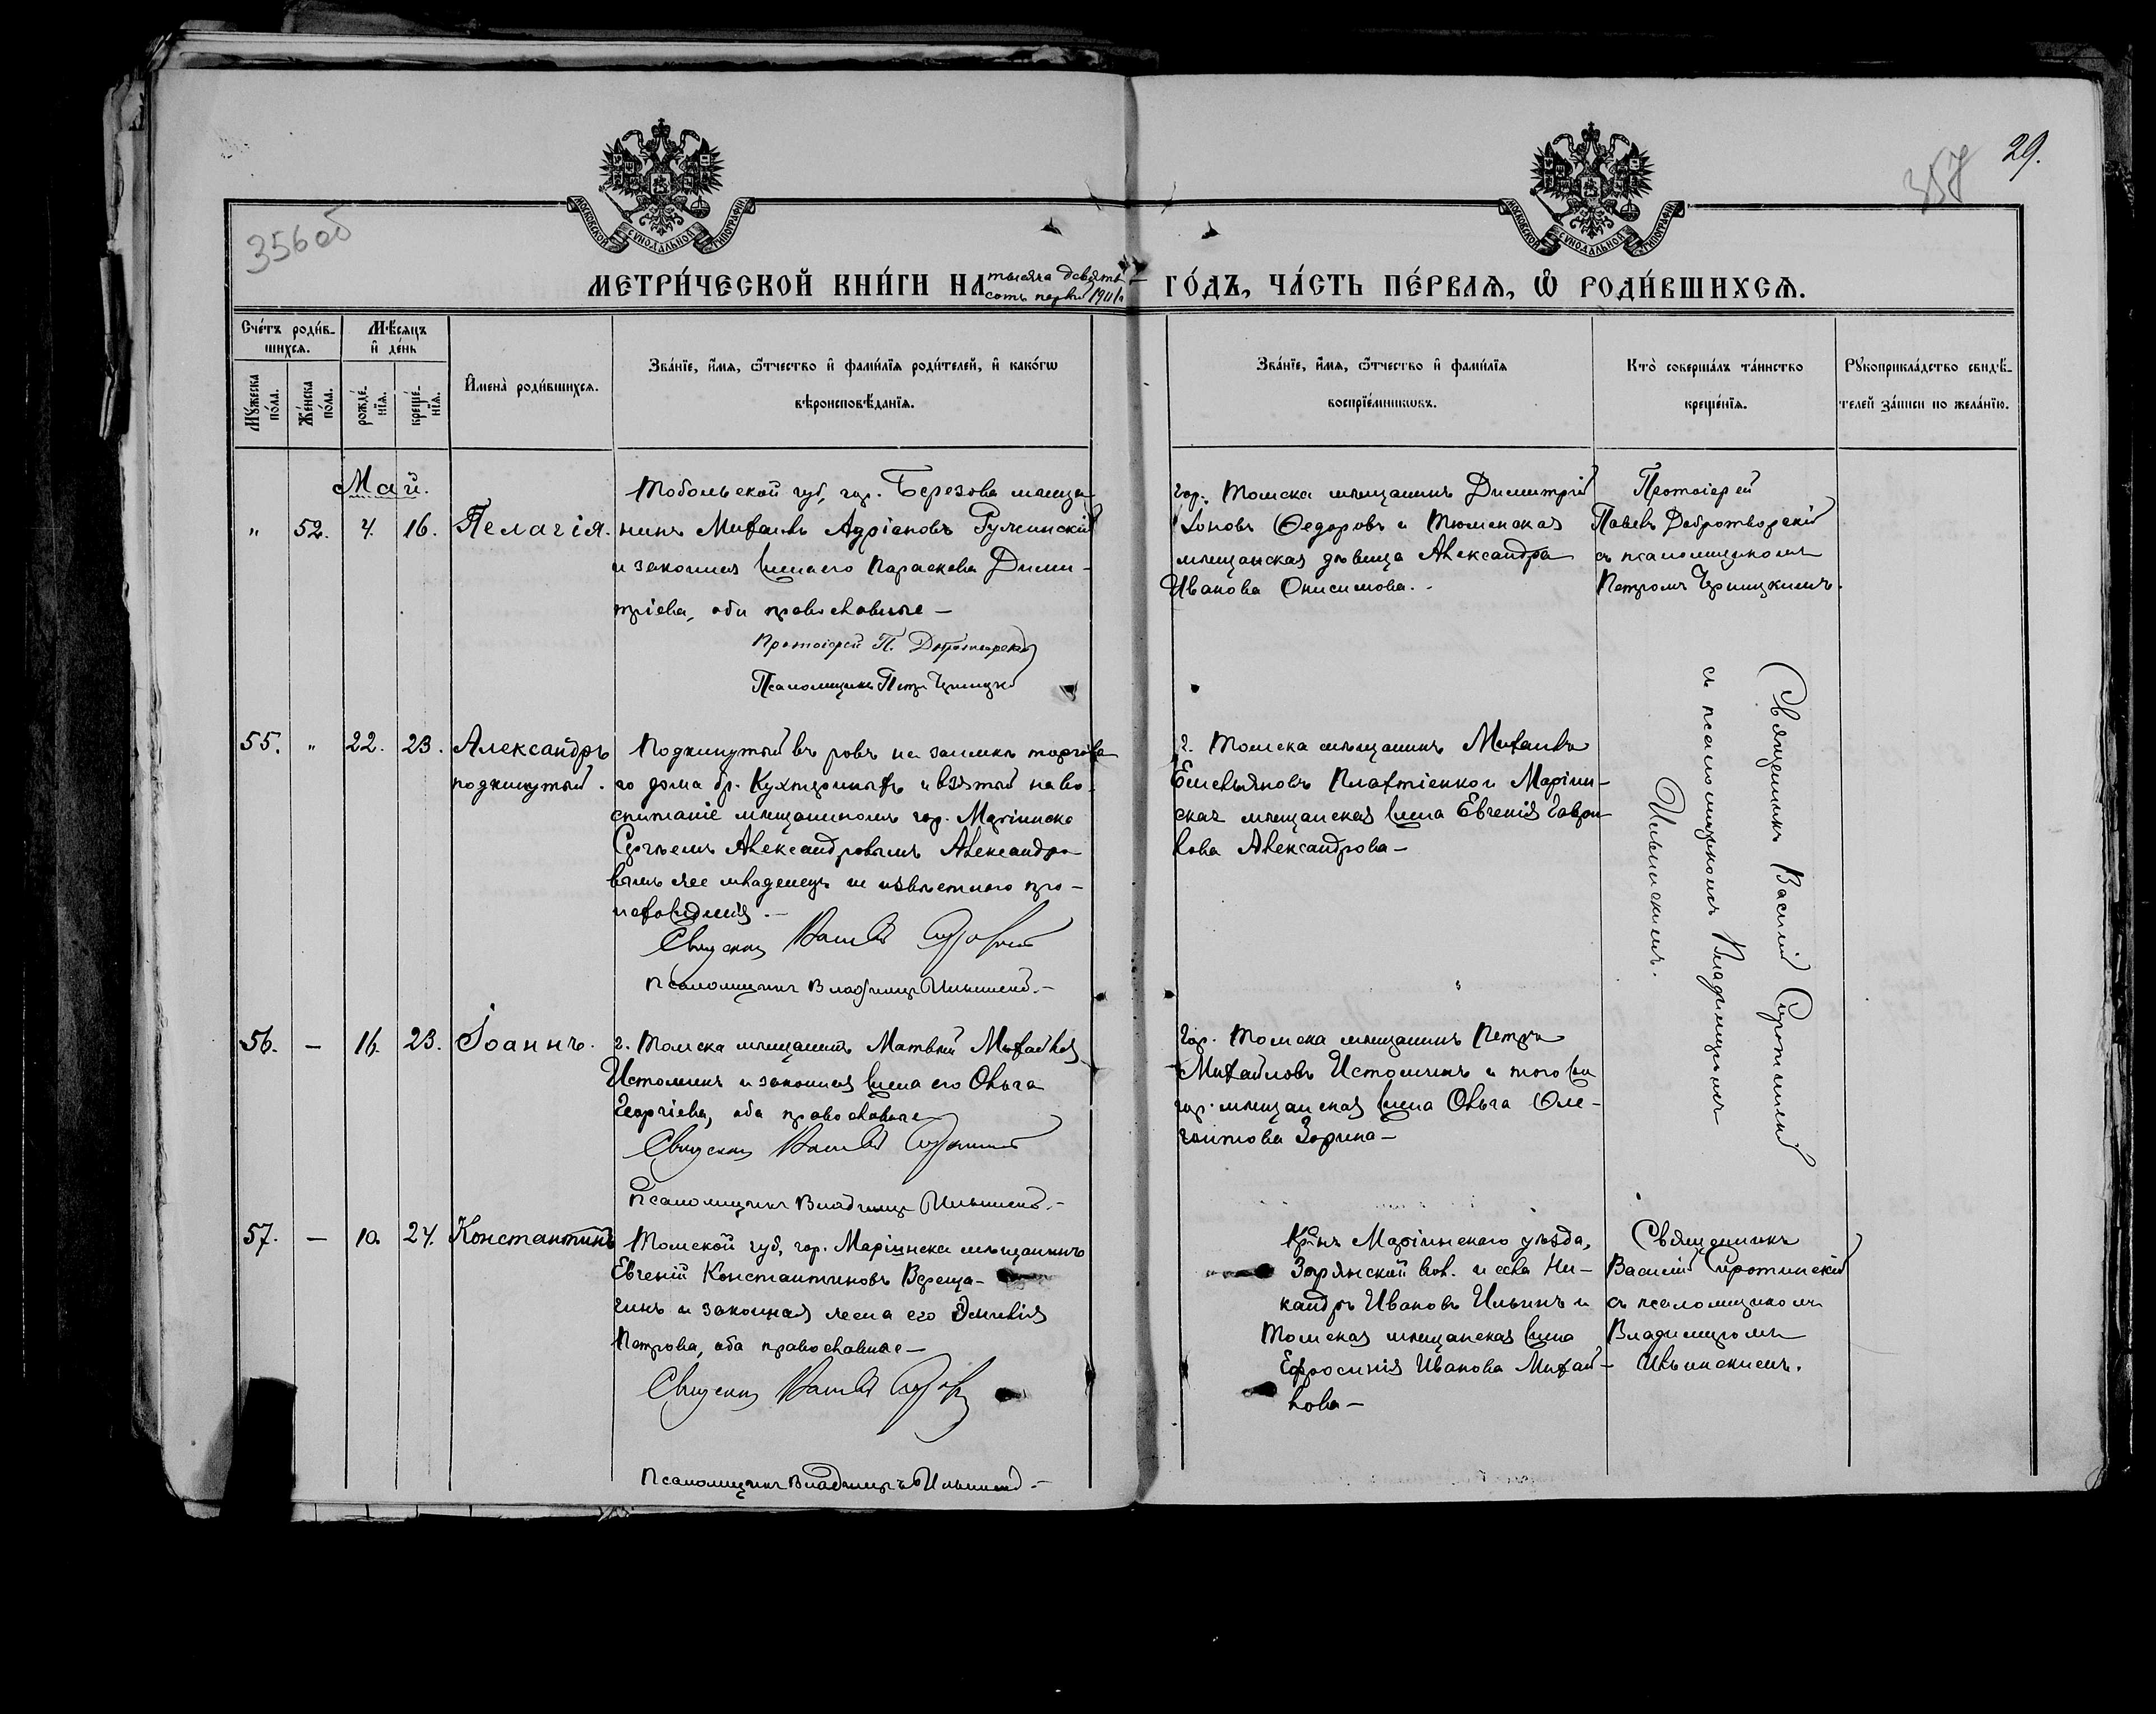 29.
357
356об
МОСКОВСКОЙ СѴНОДАЛЬНОЙ ТИПОГРАФІИ
МОСКОВСКОЙ СѴНОДАЛЬНОЙ ТИПОГРАФІИ
МЕТРИ́ЧЕСКОЙ КНИ́ГИ НА тысяча девять
сотъ первый 1901й
ГО́ДЪ, ЧА́СТЬ ПЕ́РВАЯ, Ѽ РОДИ́ВШИХСЯ.
Сче́тъ роди́в-
шихся.
Мѣ́сяцъ
и҆ де́нь
Мꙋ́жеска
по́ла.
Же́нска
по́ла.
рожде́-
нїя.
креще́-
нїя.
И҆мена̀ роди́вшихся.
Зва́нїе, и҆́мя, ѻ҆́тчество и҆ фами́лїя роди́телей, и҆ како́гѡ
вѣроисповѣ́данїя.
Зва́нїе, и҆́мя, ѻ҆́тчество и҆ фами́лїя
воспрїе́мниковъ.
Кто̀ соверша́лъ та́инство
креще́нїя.
Рꙋкоприкла́дство свидѣ́-
телей за́писи по жела́нїю.
Май.
" 52. 4. 16. Пелагія.
Тобольской губ, гор. Березова мѣща-
нинъ Михаилъ Адріановъ Ружинскій
и законная жена его Параскева Дими-
тріева, оба православные —
Протоіерей П. Добротворскій
Псаломщикъ Петръ
Гор. Томска мѣщанинъ Димитрій
Іоновъ Ѳедоровъ и Тюменская
мѣщанская дѣвица Александра
Иванова Онисимова. -
Протоіерей
Павелъ Добротворскій
съ псаломщикомъ
Петромъ
55. " 22. 23. Александръ
подкинутый.
Подкинутый въ ровъ на заимкѣ торгова-
го дома бр. Кухтериныхъ и взятый на во-
спитаніе мѣщаниномъ гор. Маріинска
Сергѣемъ Александровымъ Александро-
вымъ же младенецъ не извѣстнаго про-
исхожденія. —
Священникъ Василій Сиротинскій
Псаломщикъ Владимиръ Ильинскій. —
г. Томска мѣщанинъ Михаилъ
Емельяновъ и Маріин-
ская мѣщанская жена Евгенія Гаври-
лова Александрова —
Священникъ Василій Сиротинскій
съ псаломщикомъ Владимиромъ
Ильинскимъ.
56. — 16. 23. Іоаннъ.
г. Томска мѣщанинъ Матвѣй Михайловъ
Истоминъ и законная жена его Ольга
Георгіева, оба православные
Священникъ Василій Сиротинскій
Псаломщикъ Владимиръ Ильинскій. —
Гор. Томска мѣщанинъ Петръ
Михайловъ Истоминъ и того же
гор. мѣщанская жена Ольга
Зорина —
57. — 10. 24. Константинъ
Томской губ, гор. Маріинска мѣщанинъ
Евгеній Константиновъ Вереща-
гинъ и законная жена его Эмилія
Петрова, оба православные —
Священникъ Василій
Псаломщикъ Владимиръ Ильинскій. —
Кр-нъ Маріинскаго уѣзда,
Зырянской вол. и села Ни-
кандръ Ивановъ Ильинъ и
Томская мѣщанская жена
Ефросинія Иванова Михай-
лова —
Священникъ
Василій Сиротинскій
съ псаломщикомъ
Владимиромъ
Ильинскимъ.